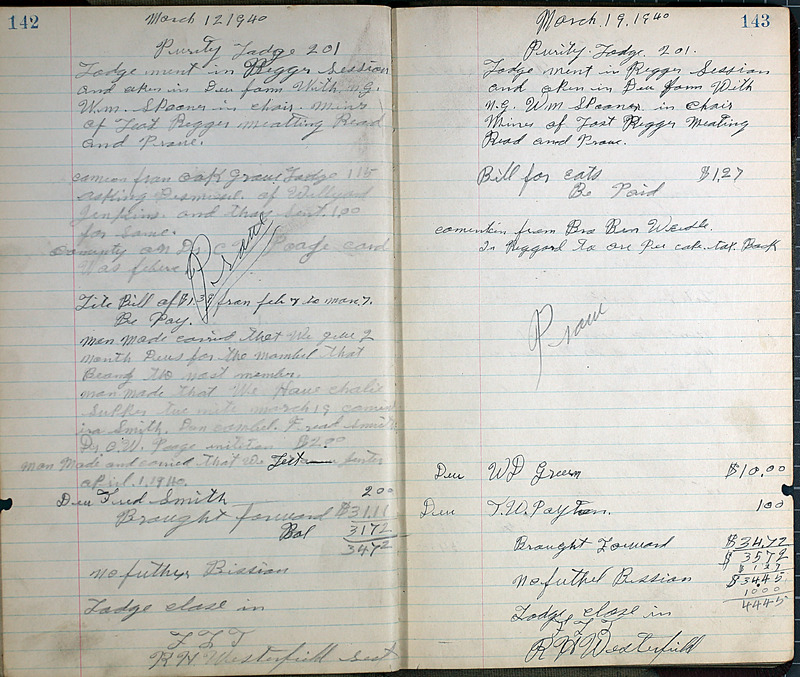 142
March 12 1940
Purity Lodge 201
Lodge ment in Regger Session
and oken in Deu form With N.G.
Wm. Spooner in chair. mines
of Last Regger meatting Read
and Prove.
comeion fran oak Grove Lodge 115
asking Dismisel. of Willyard
Jenpkins. and thay sent 100
for Same.
on Dr C W Poage card
was
Prave
Lite Bill of $1.38 fran feb 7 to mar. 7.
Be Pay.
man made carred that We give 2
month Deus for the mambel that
Beang the most member.
man made that We Have chalie
Supper tue nite march 19
ira Smith. Fred Smith
Dr. C.W. Poage $2.00
man Made and carred that We
april. 1. 1940.
Deu Fred Smith 200
Brought forward $31.11
Bal 3172
3472
no futher Bissian
Lodge close in
F L T
R H Westerfield Sect
143
March. 19, 1940
Purity Lodge. 201.
Lodge ment in Regger Session
and oken in Deu form With
N.G. Wm Spooner in chair
Mines of Last Regger Meating
Read and Prove.
Bill for eats $1.27
Be Paid
comenkin from Bro Ben Weedle.
In Reggard to one Per cake. tax. Back
Prave
Deu WD Green $10.00
Deu T.W. Payton. 100
Brought Forward $34.72
$ 3572
$ 1.27
No futhel Bussian $34.45
1000
4445
Lodge close in
F L T
R H Westerfield